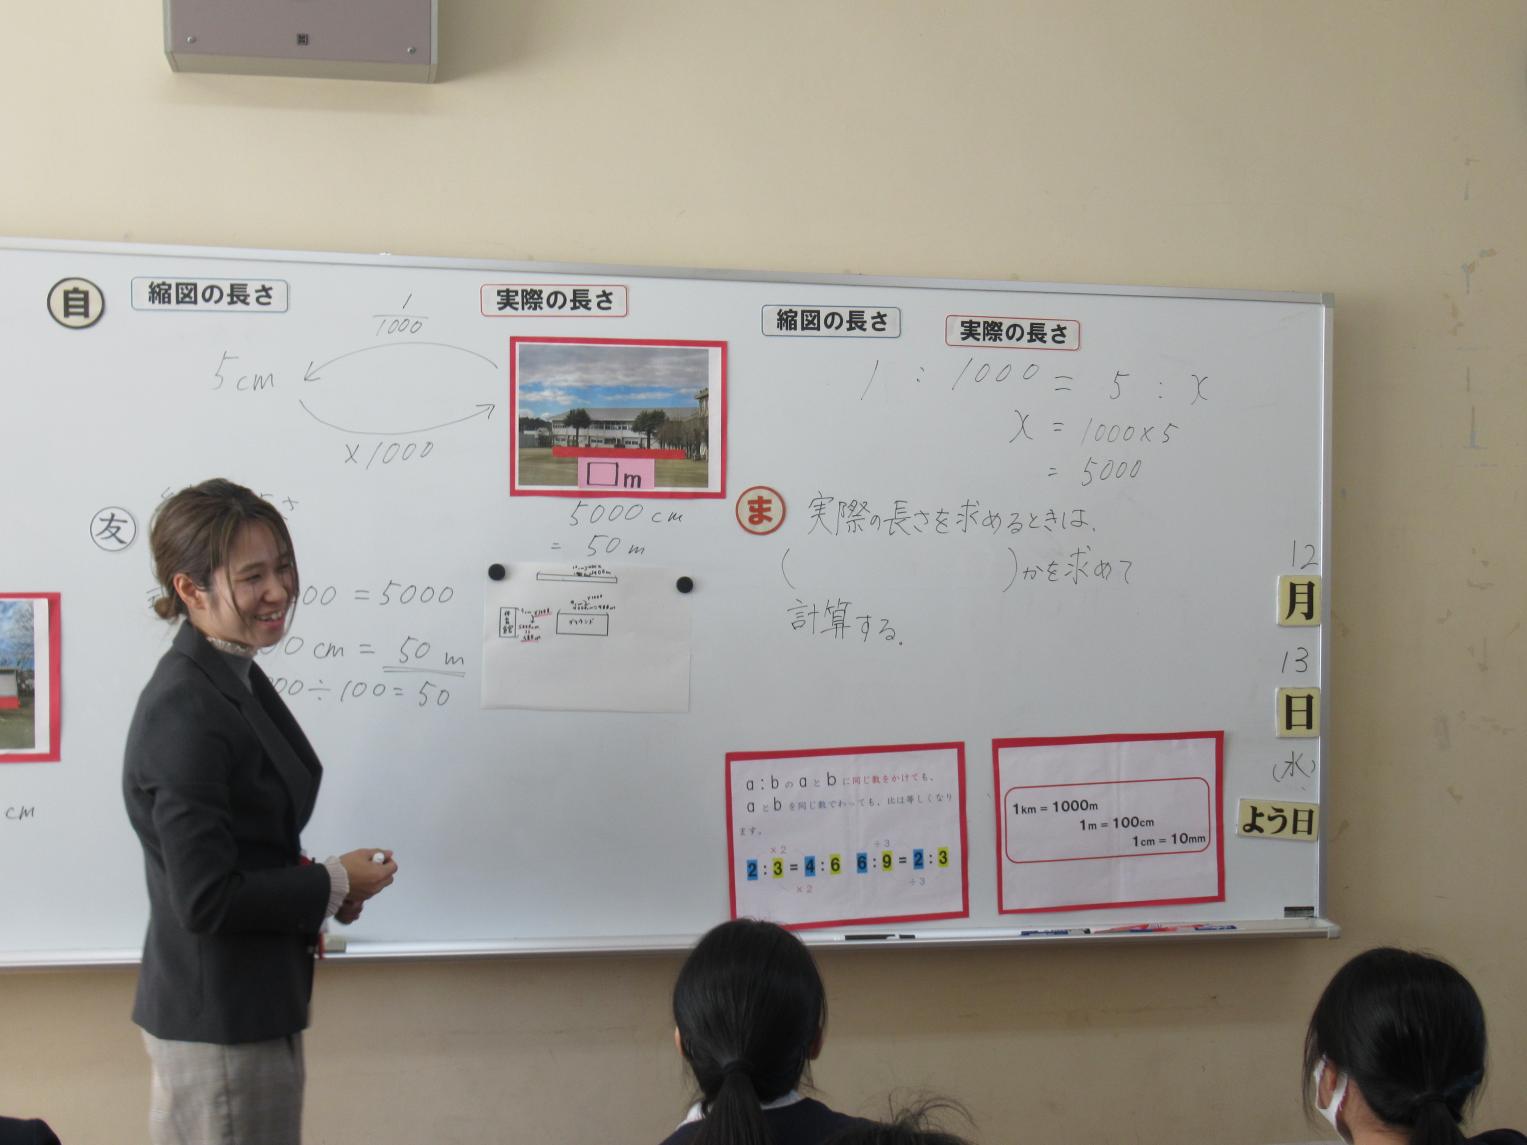 自
縮図の長さ
実際の長さ
1
1000
5cm
×1000
□m
5000cm
= 50m
友
00 = 5000
00cm = 50m
000÷100=50
cm
グラウンド
縮図の長さ
実際の長さ
1 : 1000 = 5 : x
x = 1000×5
= 5000
ま
実際の長さを求めるときは、
( )かを求めて
計算する。
a:bのaとbに同じ数をかけても、
aとbを同じ数でわっても、比は等しくなり
ます。
×2
÷3
2:3=4:6 6:9=2:3
×2
÷3
1km = 1000m
1m = 100cm
1cm = 10mm
12
月
13
日
(水)
よう日